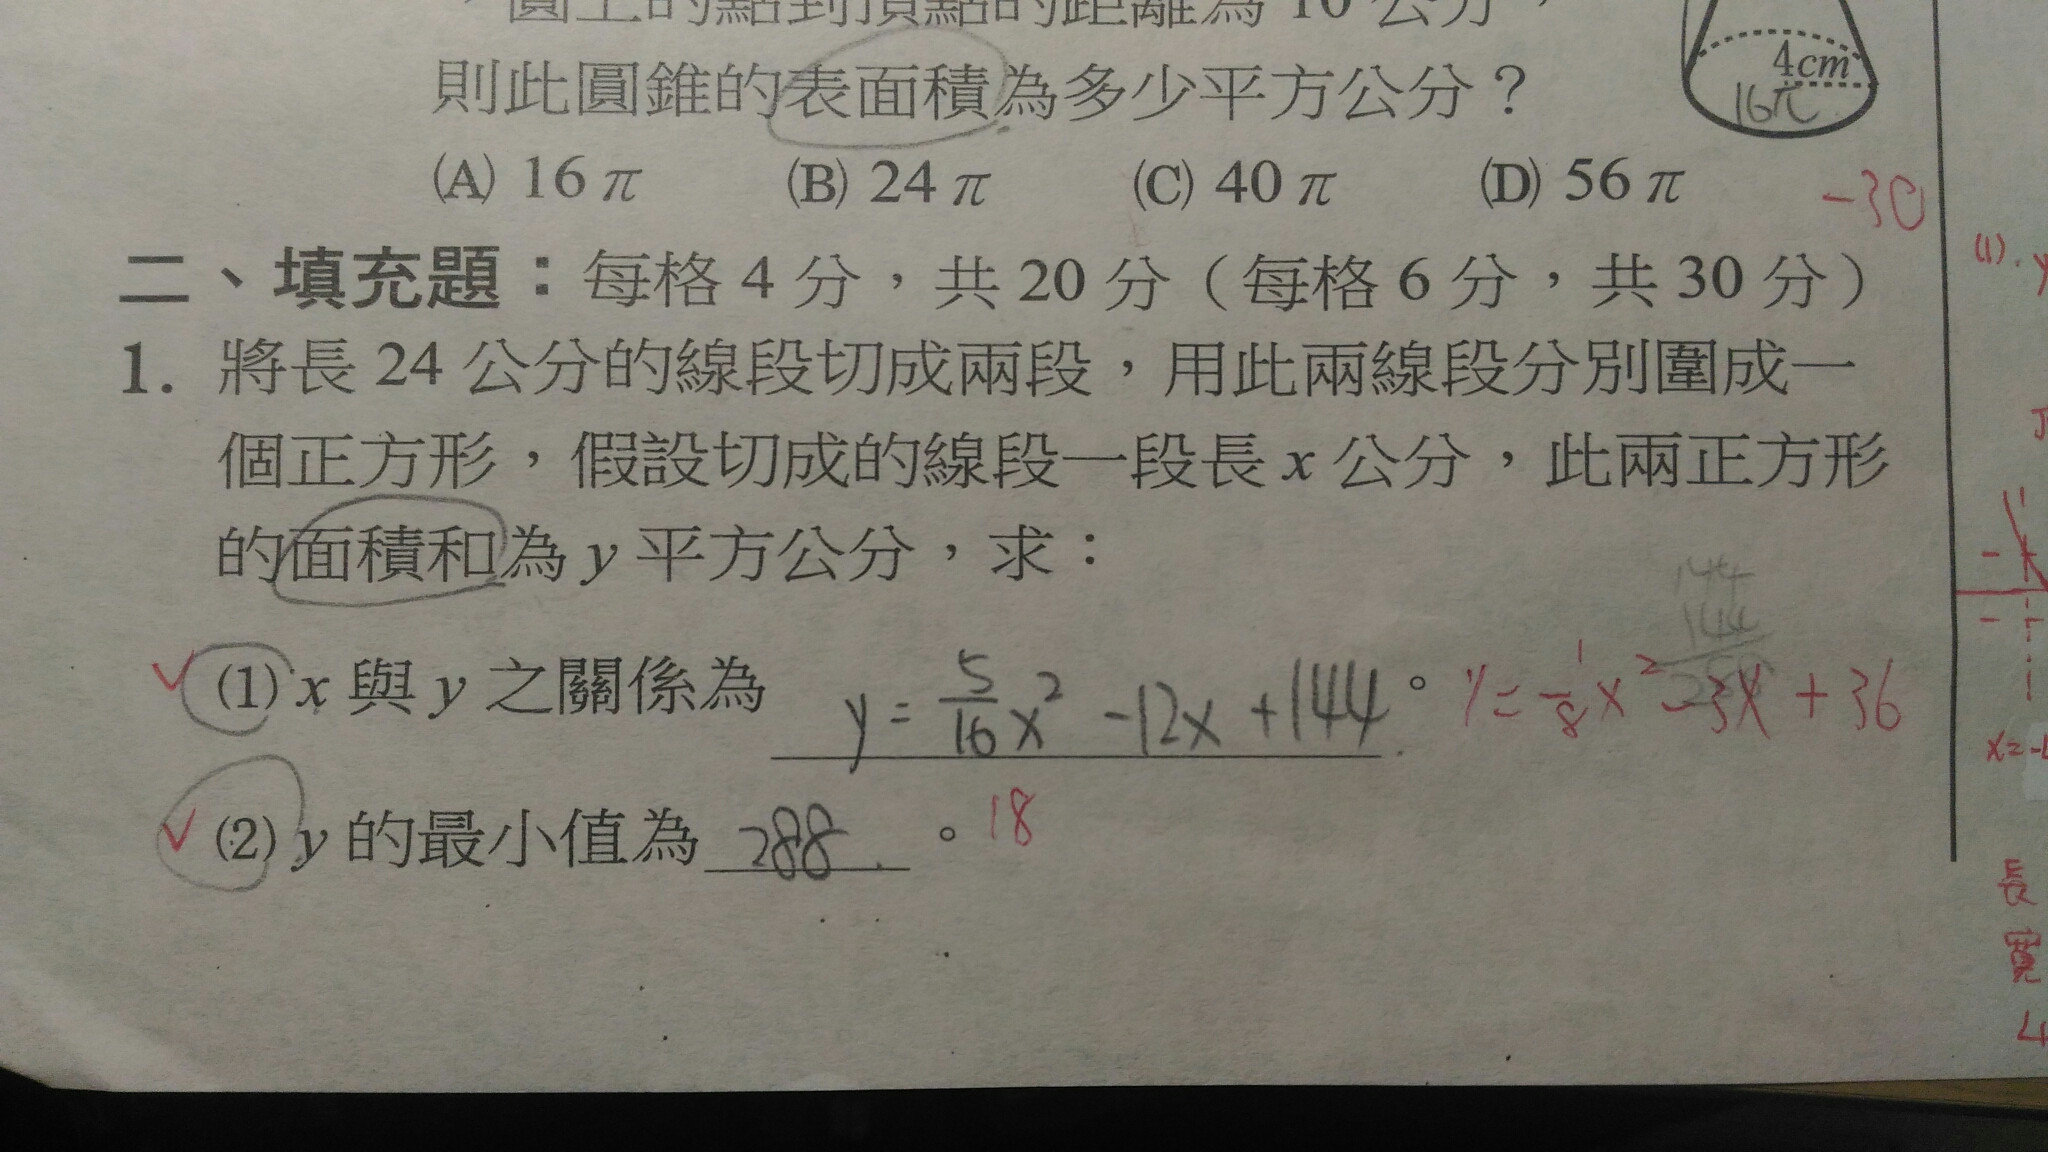 圓上的點到頂點的距離為 10 公分，
則此圓錐的表面積為多少平方公分？
4cm
16π
(A) 16 π (B) 24 π (C) 40 π (D) 56 π
-30
二、填充題：每格 4 分，共 20 分（每格 6 分，共 30 分）
(1). y
1. 將長 24 公分的線段切成兩段，用此兩線段分別圍成一
個正方形，假設切成的線段一段長 x 公分，此兩正方形
的面積和為 y 平方公分，求：
144
144
(1) x 與 y 之關係為 y = 5/16 x² - 12x + 144 。 y = 1/8 x² - 3x + 36
x = -
(2) y 的最小值為 288 。 18
長
寬